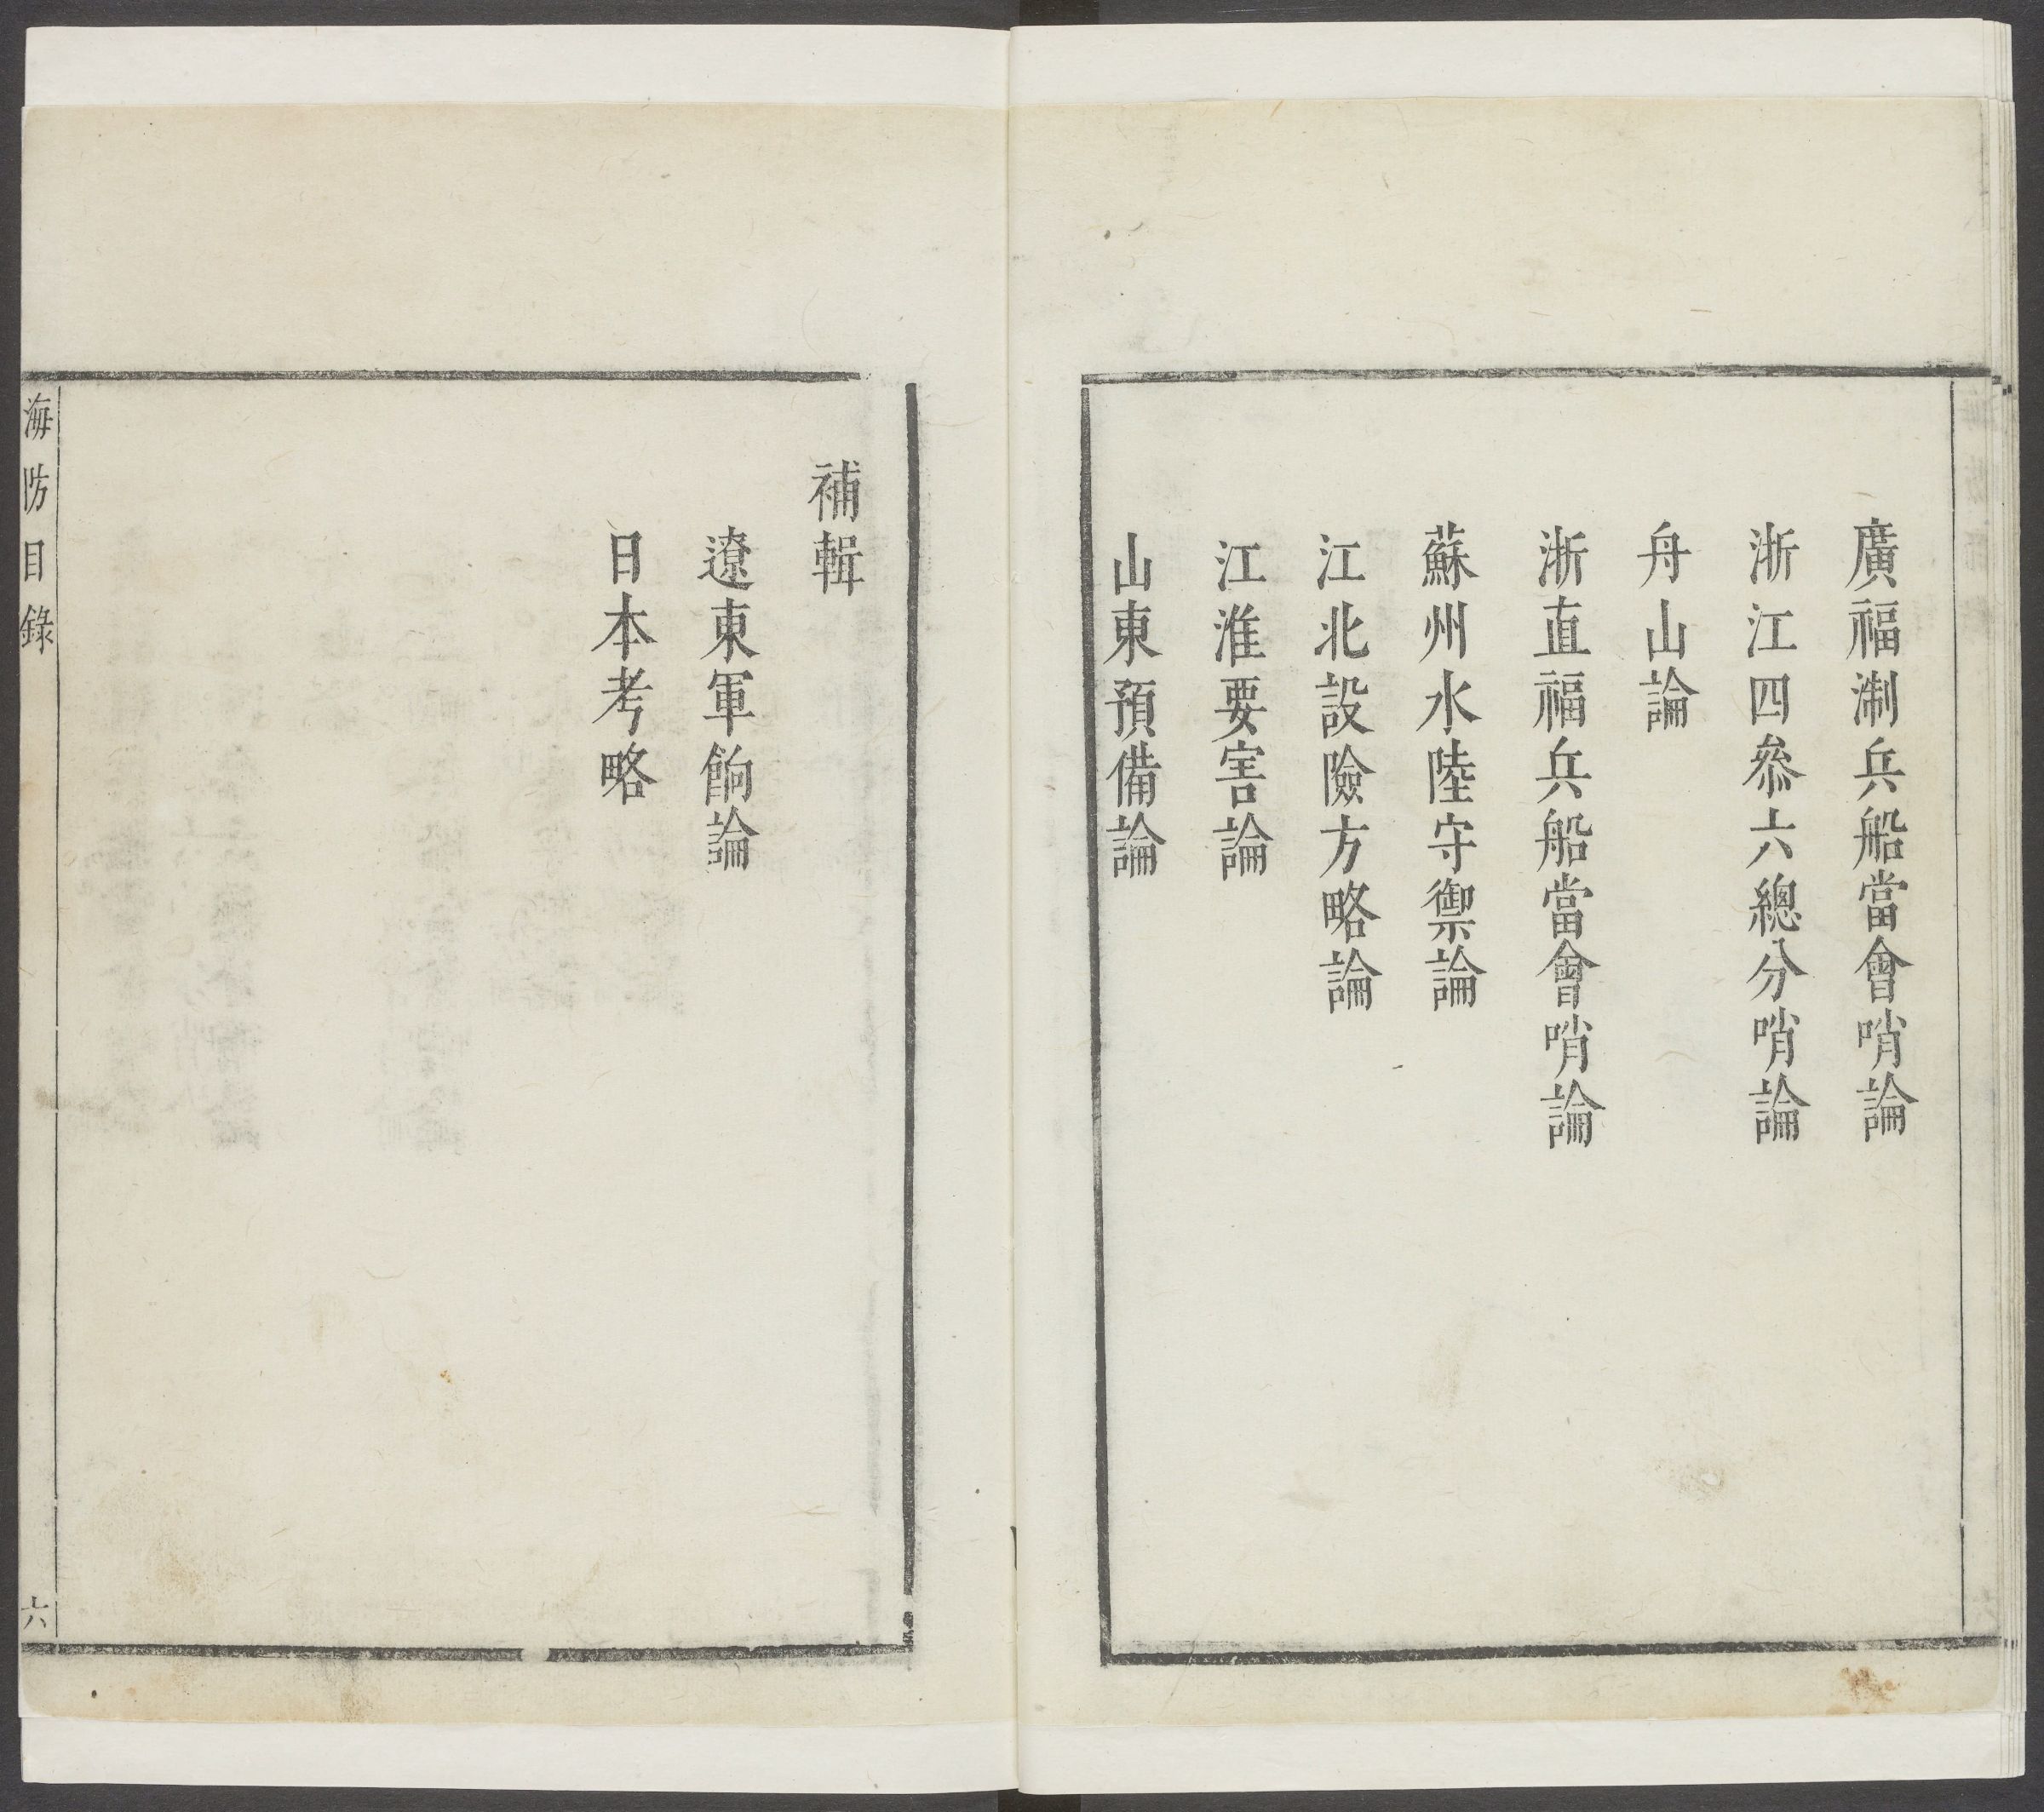 廣福淛兵船當會哨論
浙江四叅六總分哨論
舟山論
浙直福兵船當會哨論
蘇州水陸守禦論
江北設險方略論
江淮要害論
山東預備論
補輯
遼東軍餉論
日本考略
海防目錄
六